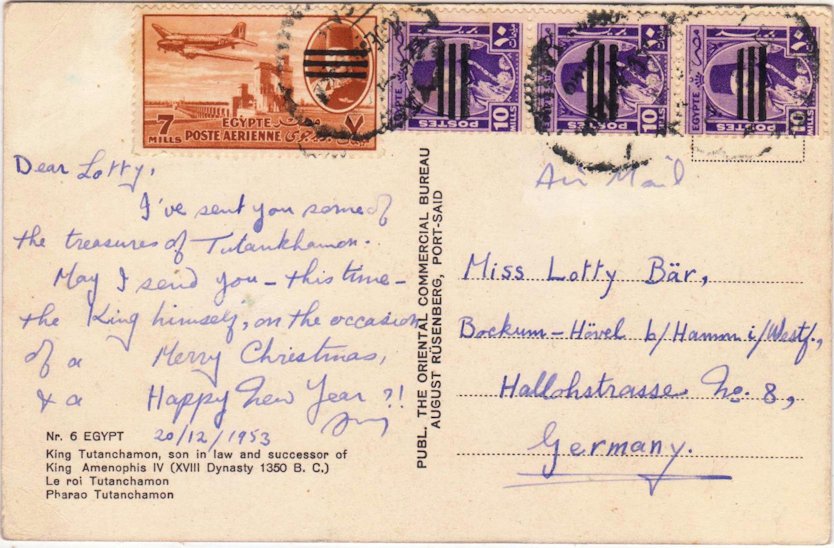 7
MILLS
EGYPTE
POSTE AERIENNE
EGYPTE
POSTES
10
MILLS
EGYPTE
POSTES
10
MILLS
EGYPTE
POSTES
10
MILLS
Dear Lotty,
I've sent you some of
the treasures of Tutankhamon.
May I send you – this time –
the King himself, on the occasion
of a Merry Christmas,
& a Happy New Year ?!
20/12/1953
Nr. 6 EGYPT
King Tutanchamon, son in law and successor of
King Amenophis IV (XVIII Dynasty 1350 B. C.)
Le roi Tutanchamon
Pharao Tutanchamon
PUBL. THE ORIENTAL COMMERCIAL BUREAU
AUGUST RÜSENBERG, PORT-SAID
Air Mail
Miss Lotty Bär,
Bockum-Hövel b/Hamm i/Westf.,
Hallohstrasse No. 8,
Germany.